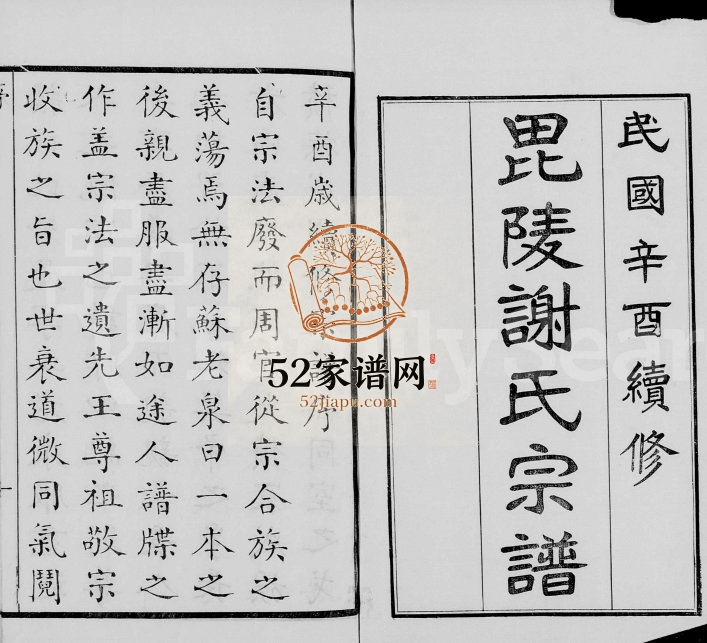 民國辛酉續修
毘陵謝氏宗譜
辛酉歲續修序
自宗法廢而周官從宗合族之
義蕩焉無存蘇老泉曰一本之
後親盡服盡漸如途人譜牒之
作盖宗法之遺先王尊祖敬宗
收族之旨也世衰道微同氣鬩
52家谱网
52jiapu.com